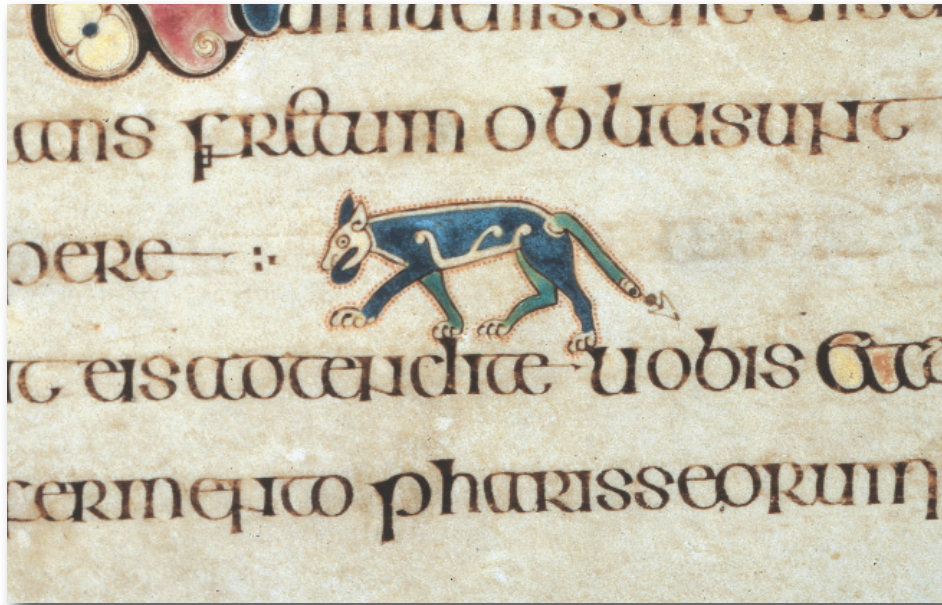 ans fretum oblitisunt
pere
it eis adtendite uobis
fermento pharisseorum